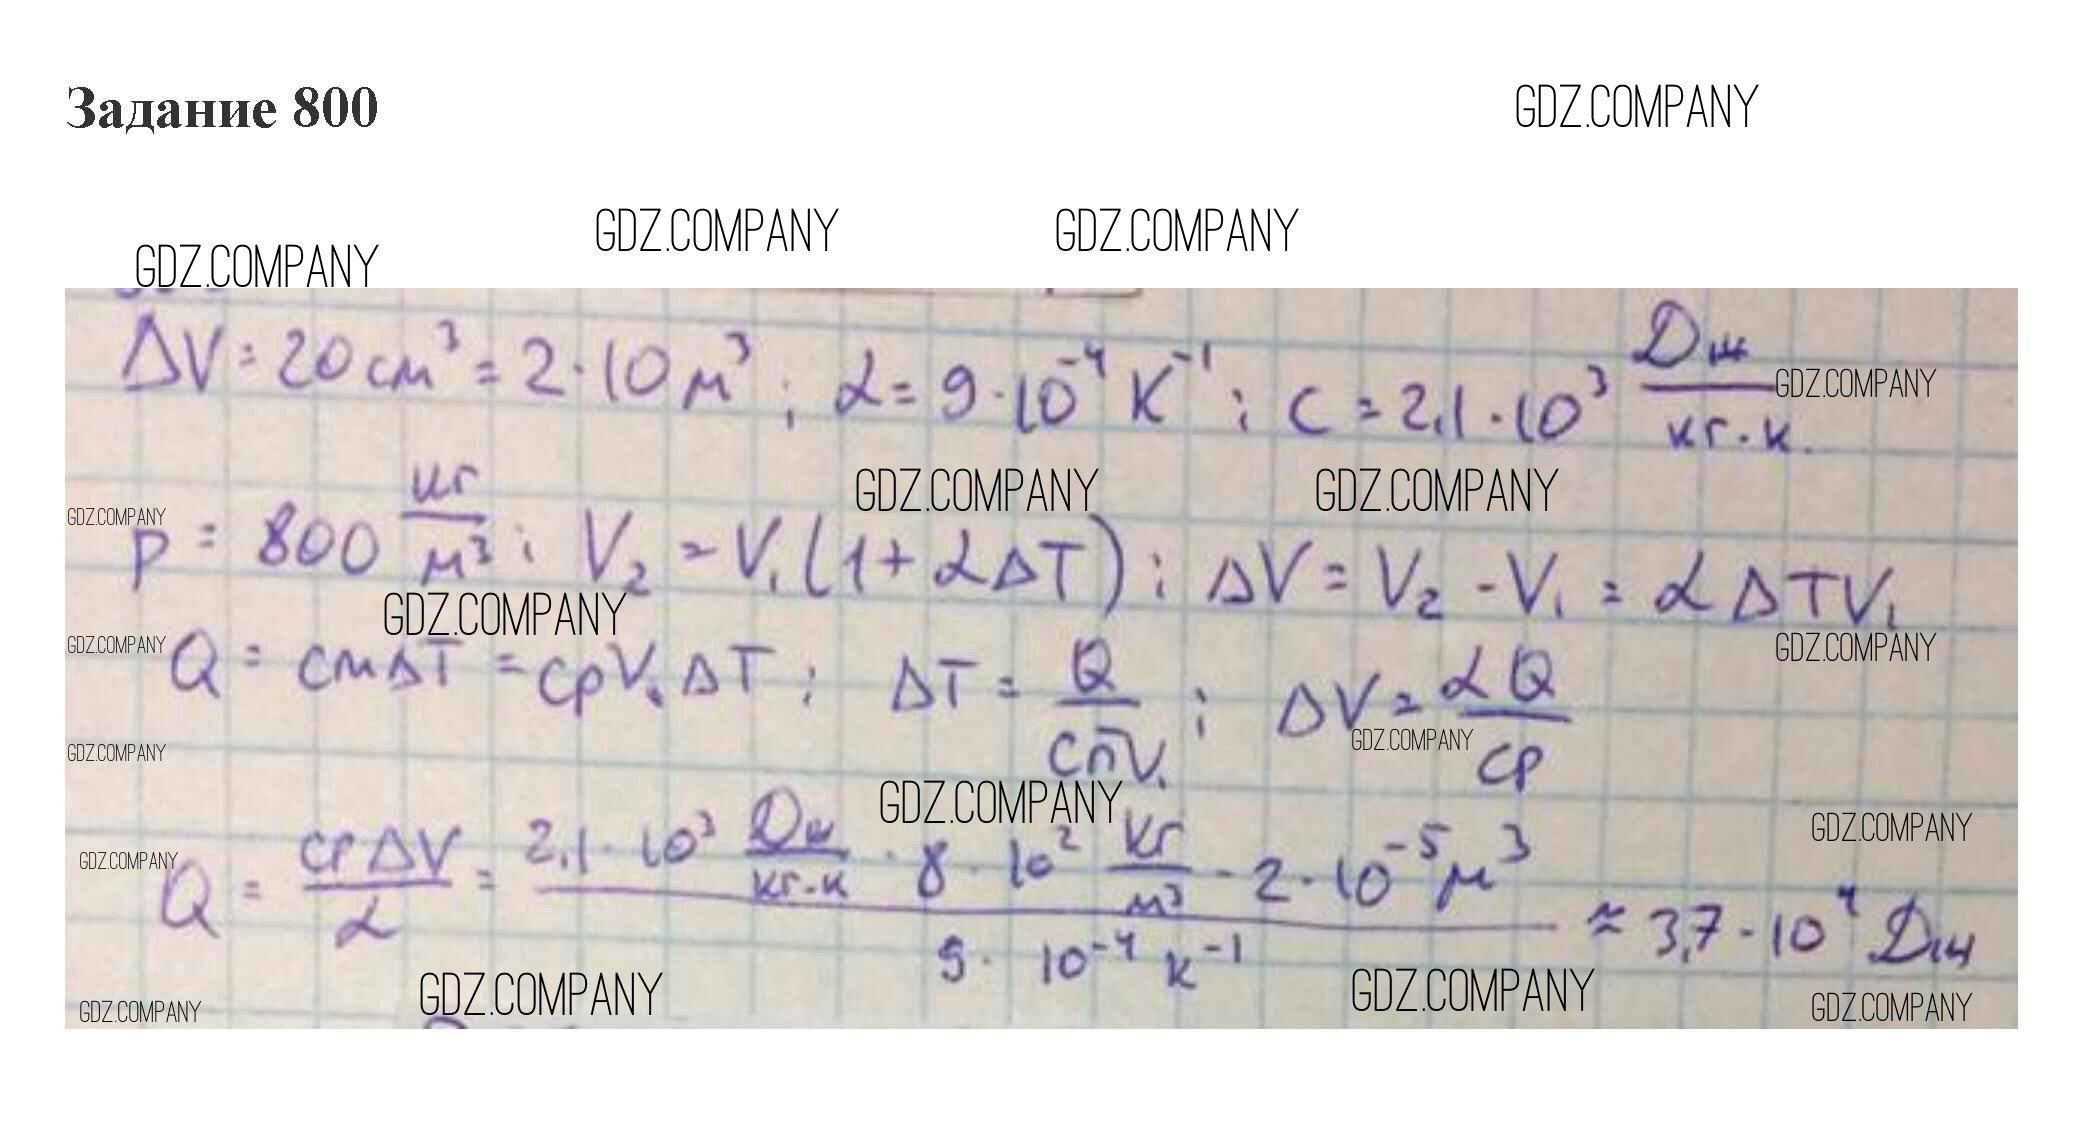 Задание 800
GDZ.COMPANY
GDZ.COMPANY GDZ.COMPANY
GDZ.COMPANY
ΔV = 20 см³ = 2 · 10 м³ ; α = 9 · 10⁻⁴ К⁻¹ ; c = 2,1 · 10³ Дж/кг·к. GDZ.COMPANY
GDZ.COMPANY GDZ.COMPANY
GDZ.COMPANY
ρ = 800 кг/м³ ; V₂ = V₁(1 + αΔT) ; ΔV = V₂ - V₁ = αΔTV₁
GDZ.COMPANY
GDZ.COMPANY GDZ.COMPANY
Q = cmΔT = cρV₁ΔT ; ΔT = Q/cпV₁ ; ΔV = αQ/cρ
GDZ.COMPANY GDZ.COMPANY
GDZ.COMPANY GDZ.COMPANY
GDZ.COMPANY
Q = cρΔV/α = 2,1 · 10³ Дж/кг·к · 8 · 10² кг/м³ · 2 · 10⁻⁵ м³ / 9 · 10⁻⁴ к⁻¹ ≈ 3,7 · 10⁴ Дж
GDZ.COMPANY GDZ.COMPANY GDZ.COMPANY GDZ.COMPANY